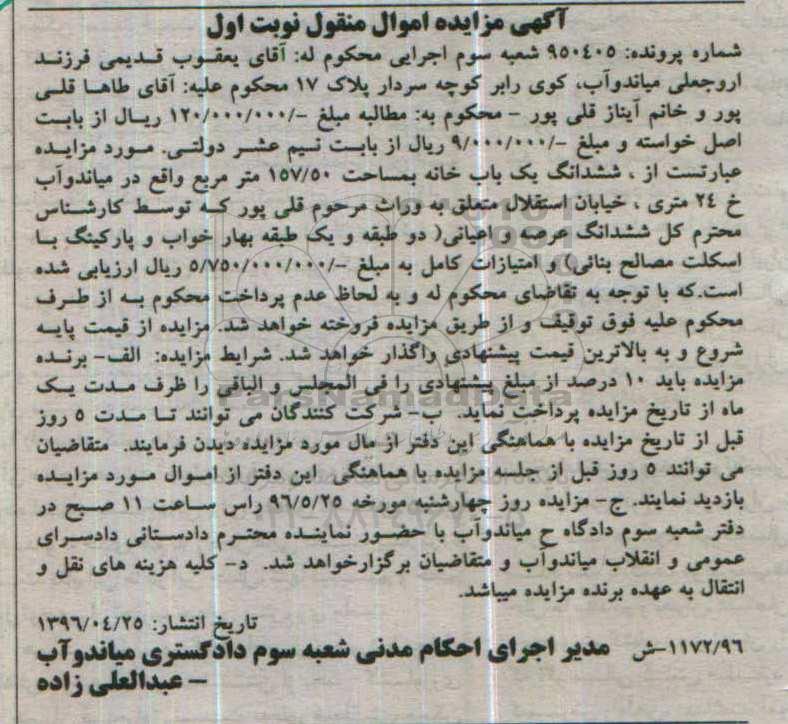 آگهی مزایده اموال منقول نوبت اول
شماره پرونده: ۹۵۰۴۰۵ شعبه سوم اجرایی محکوم له: آقای یعقوب قدیمی فرزند
اروجعلی میاندوآب، کوی رابر کوچه سردار پلاک ۱۷ محکوم علیه: آقای طاها قلی
پور و خانم آیناز قلی پور - محکوم به: مطالبه مبلغ -/۱۲۰/۰۰۰/۰۰۰ ریال از بابت
اصل خواسته و مبلغ -/۹/۰۰۰/۰۰۰ ریال از بابت نیم عشر دولتی. مورد مزایده
عبارتست از ، ششدانگ یک باب خانه بمساحت ۱۵۷/۵۰ متر مربع واقع در میاندوآب
خ ۲۴ متری ، خیابان استقلال متعلق به وراث مرحوم قلی پور که توسط کارشناس
محترم کل ششدانگ عرصه و اعیانی( دو طبقه و یک طبقه بهار خواب و پارکینگ با
اسکلت مصالح بنائی) و امتیازات کامل به مبلغ -/۵/۷۵۰/۰۰۰/۰۰۰ ریال ارزیابی شده
است.که با توجه به تقاضای محکوم له و به لحاظ عدم پرداخت محکوم به از طرف
محکوم علیه فوق توقیف و از طریق مزایده فروخته خواهد شد. مزایده از قیمت پایه
شروع و به بالاترین قیمت پیشنهادی واگذار خواهد شد. شرایط مزایده: الف- برنده
مزایده باید ۱۰ درصد از مبلغ پیشنهادی را فی المجلس و الباقی را ظرف مدت یک
ماه از تاریخ مزایده پرداخت نماید. ب- شرکت کنندگان می توانند تا مدت ۵ روز
قبل از تاریخ مزایده با هماهنگی این دفتر از مال مورد مزایده دیدن فرمایند. متقاضیان
می توانند ۵ روز قبل از جلسه مزایده با هماهنگی این دفتر از اموال مورد مزایده
بازدید نمایند. ج- مزایده روز چهارشنبه مورخه ۹۶/۵/۲۵ راس ساعت ۱۱ صبح در
دفتر شعبه سوم دادگاه ح میاندوآب با حضور نماینده محترم دادستانی دادسرای
عمومی و انقلاب میاندوآب و متقاضیان برگزارخواهد شد. د- کلیه هزینه های نقل و
انتقال به عهده برنده مزایده میباشد.
تاریخ انتشار: ۱۳۹۶/۰۴/۲۵
۱۱۷۲/۹۶-ش مدیر اجرای احکام مدنی شعبه سوم دادگستری میاندوآب
- عبدالعلی زاده
ParsNamadData